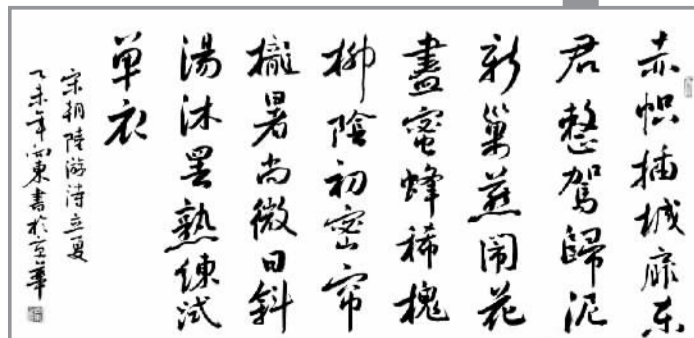 赤帜插城扉东
君整驾歸泥
新巢燕闹花
盡蜜蜂稀槐
柳陰初密帘
櫳暑尚微日斜
湯沐罢熟練试
单衣
宋朝陸游诗立夏
乙未年向東書於京華